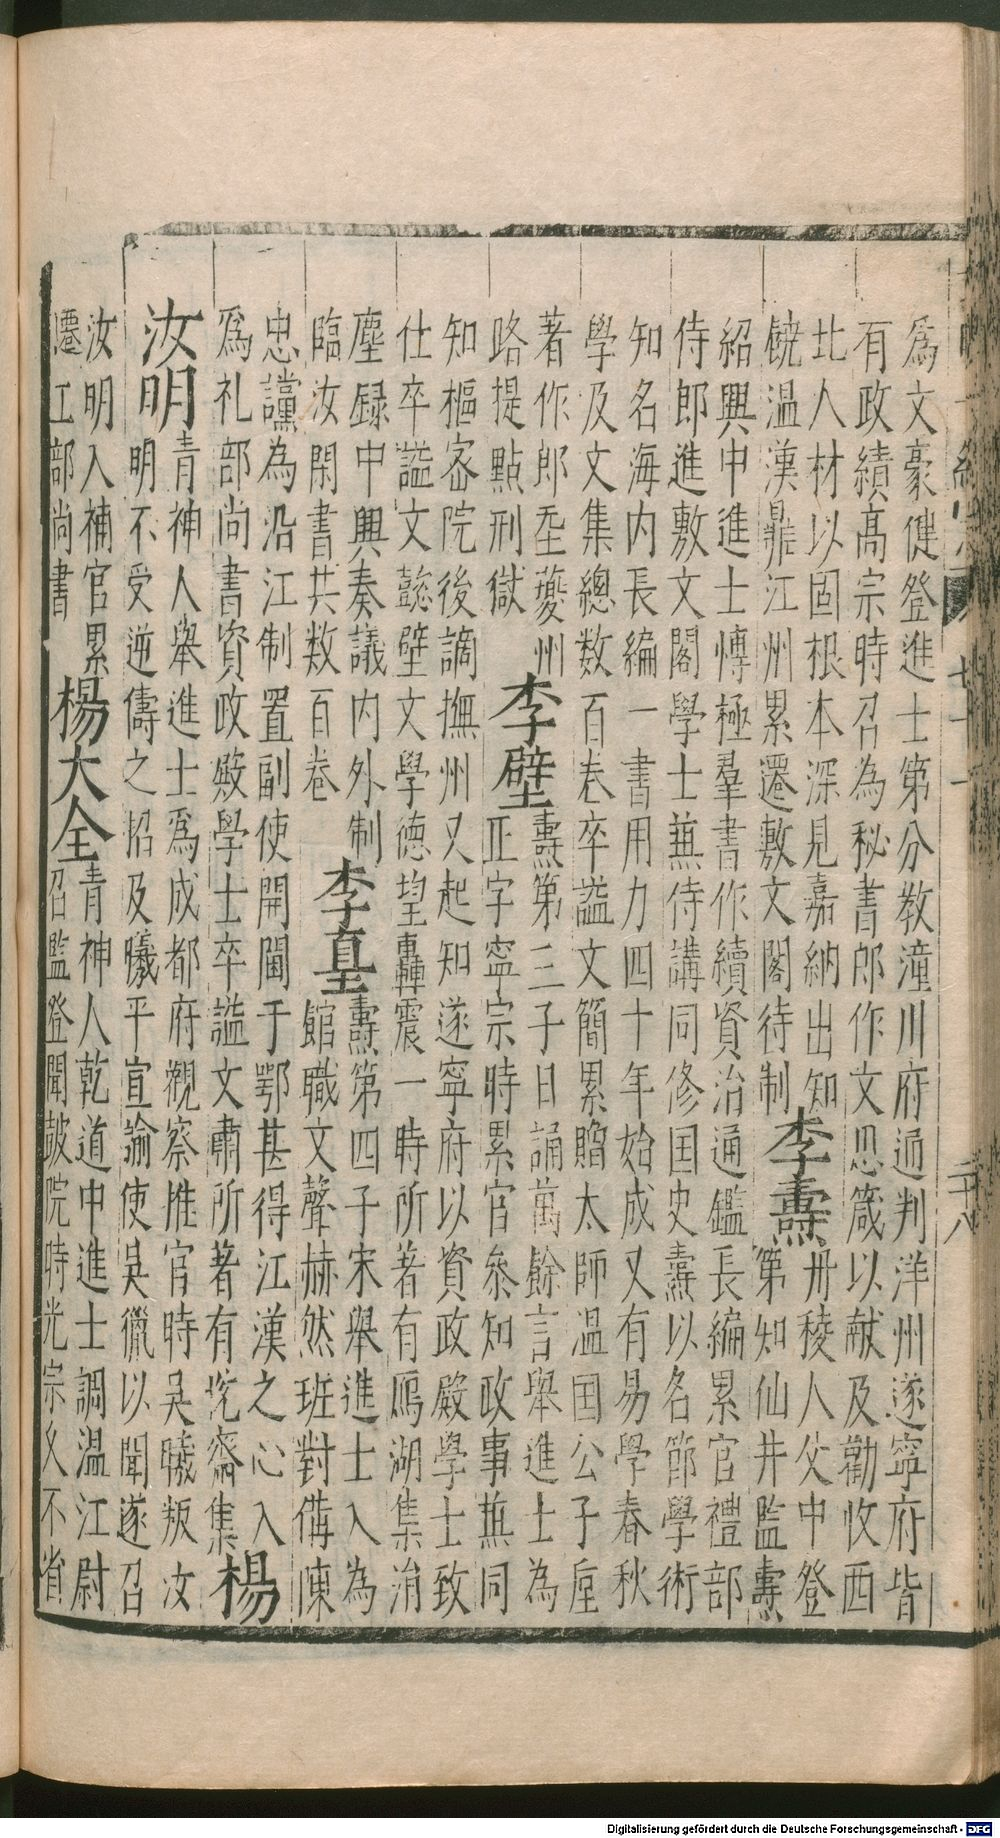 為文豪健登進士第分教潼川府通判洋州遂寧府皆
有政績髙宗時召為秘書郎作文思箴以献及勸收西
北人材以固根本深見嘉納出知
饒温漢鼎江州累遷敷文閣待制
李燾
丹稜人父中登
第知仙井監燾
紹興中進士愽極羣書作續資治通鑑長編累官禮部
侍郎進敷文閣學士兼侍講同修国史燾以名節學術
知名海内長編一書用力四十年始成又有易學春秋
學及文集總数百巻卒謚文簡累贈太師温国公子垕
著作郎垔夔州
路提點刑獄
李壁
燾第三子日誦萬餘言舉進士為
正字寧宗時累官叅知政事兼同
知樞密院後謫撫州又起知遂寧府以資政殿學士致
仕卒謚文懿壁文學德望轟震一時所著有鴈湖集涓
塵録中興奏議内外制
臨汝閑書共数百巻
李𡌴
燾第四子宋舉進士入為
館職文聲赫然班對偹陳
忠讜為沿江制置副使開閫于鄂甚得江漢之心入
為礼部尚書資政殿學士卒謚文肅所著有悦齋集
楊
汝明
青神人舉進士為成都府觀察推官時吳曦叛汝
明不受逆儔之招及曦平宣諭使吳獵以聞遂召
汝明入補官累
遷工部尚書
楊大全
青神人乾道中進士調温江尉
召監登聞皷院時光宗久不省
Digitalisierung gefördert durch die Deutsche Forschungsgemeinschaft - DFG